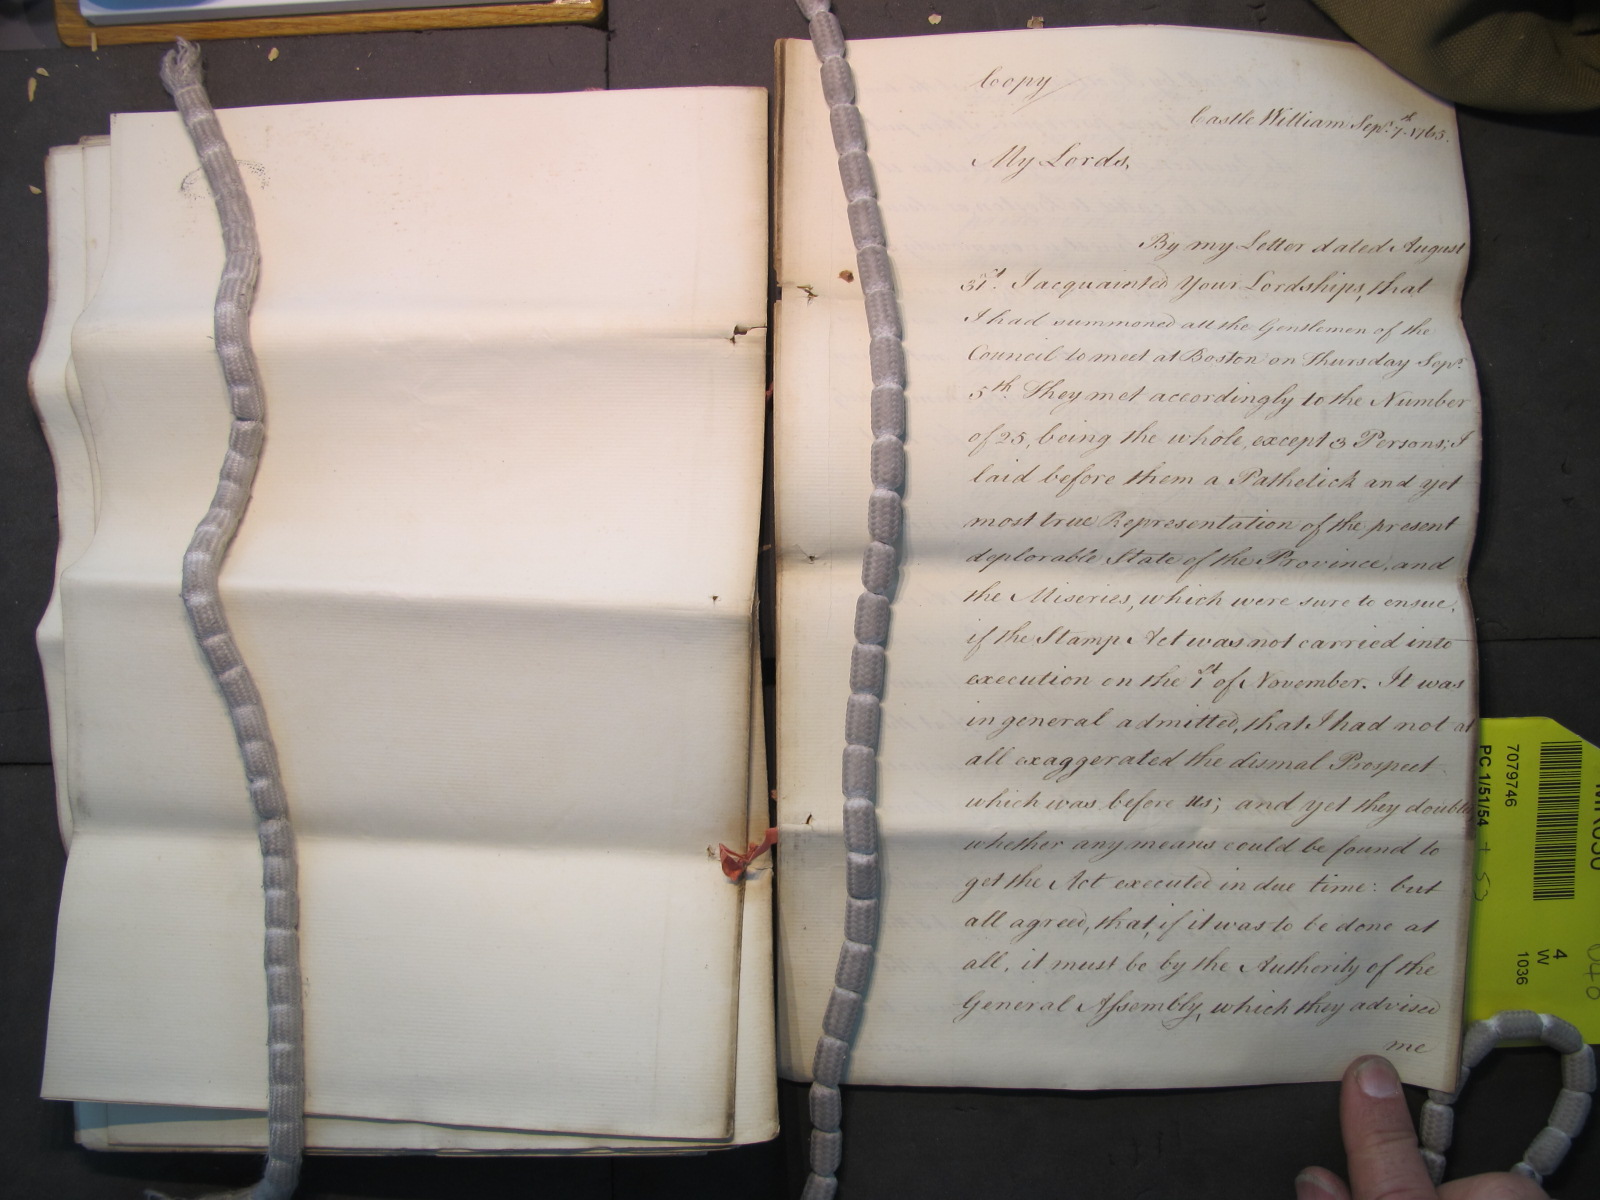 Copy
Castle William Sepr. 7th. 1765.
My Lords,
By my Letter dated August
31st. I acquainted Your Lordships, that
I had summoned all the Gentlemen of the
Council to meet at Boston on Thursday Sepr.
5th. They met accordingly to the Number
of 25, being the whole, except 3 Persons; I
laid before them a Pathetick and yet
most true Representation of the present
deplorable State of the Province, and
the Miseries, which were sure to ensue,
if the Stamp Act was not carried into
execution on the 1st of November. It was
in general admitted, that I had not at
all exaggerated the dismal Prospect
which was before us; and yet they doubted
whether any means could be found to
get the Act executed in due time: but
all agreed, that, if it was to be done at
all, it must be by the Authority of the
General Assembly, which they advised
me
7079746
PC 1/51/54 + 53
4
W
1036